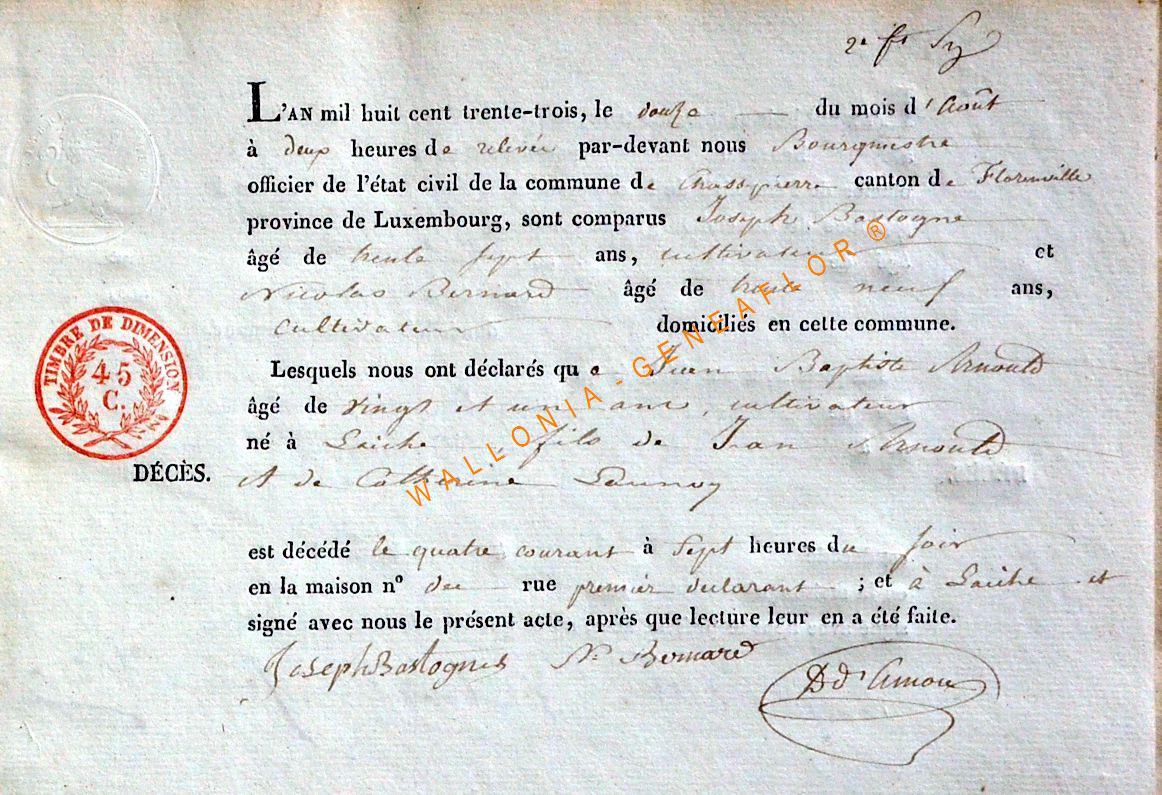 L'AN mil huit cent trente-trois, le douze du mois d'Août
à deux heures de relevée par-devant nous Bourgmestre
officier de l'état civil de la commune de Chassepierre canton de Florenville
province de Luxembourg, sont comparus Joseph Bastogne
âgé de trente sept ans, cultivateur et
Nicolas Bernard âgé de trente neuf ans,
Cultivateur domiciliés en cette commune.
TIMBRE DE DIMENSION
45
C.
DÉCÈS.
Lesquels nous ont déclarés que Jean Baptiste Arnould
âgé de vingt et un ans, cultivateur
né à Laiche fils de Jean Arnould
et de Catherine Launoy
est décédé le quatre courant à sept heures du soir
en la maison n° du rue premier déclarant ; et à Laiche et
signé avec nous le présent acte, après que lecture leur en a été faite.
Joseph Bastogne N. Bernard
WALLONIA-GENEAFLOR ®